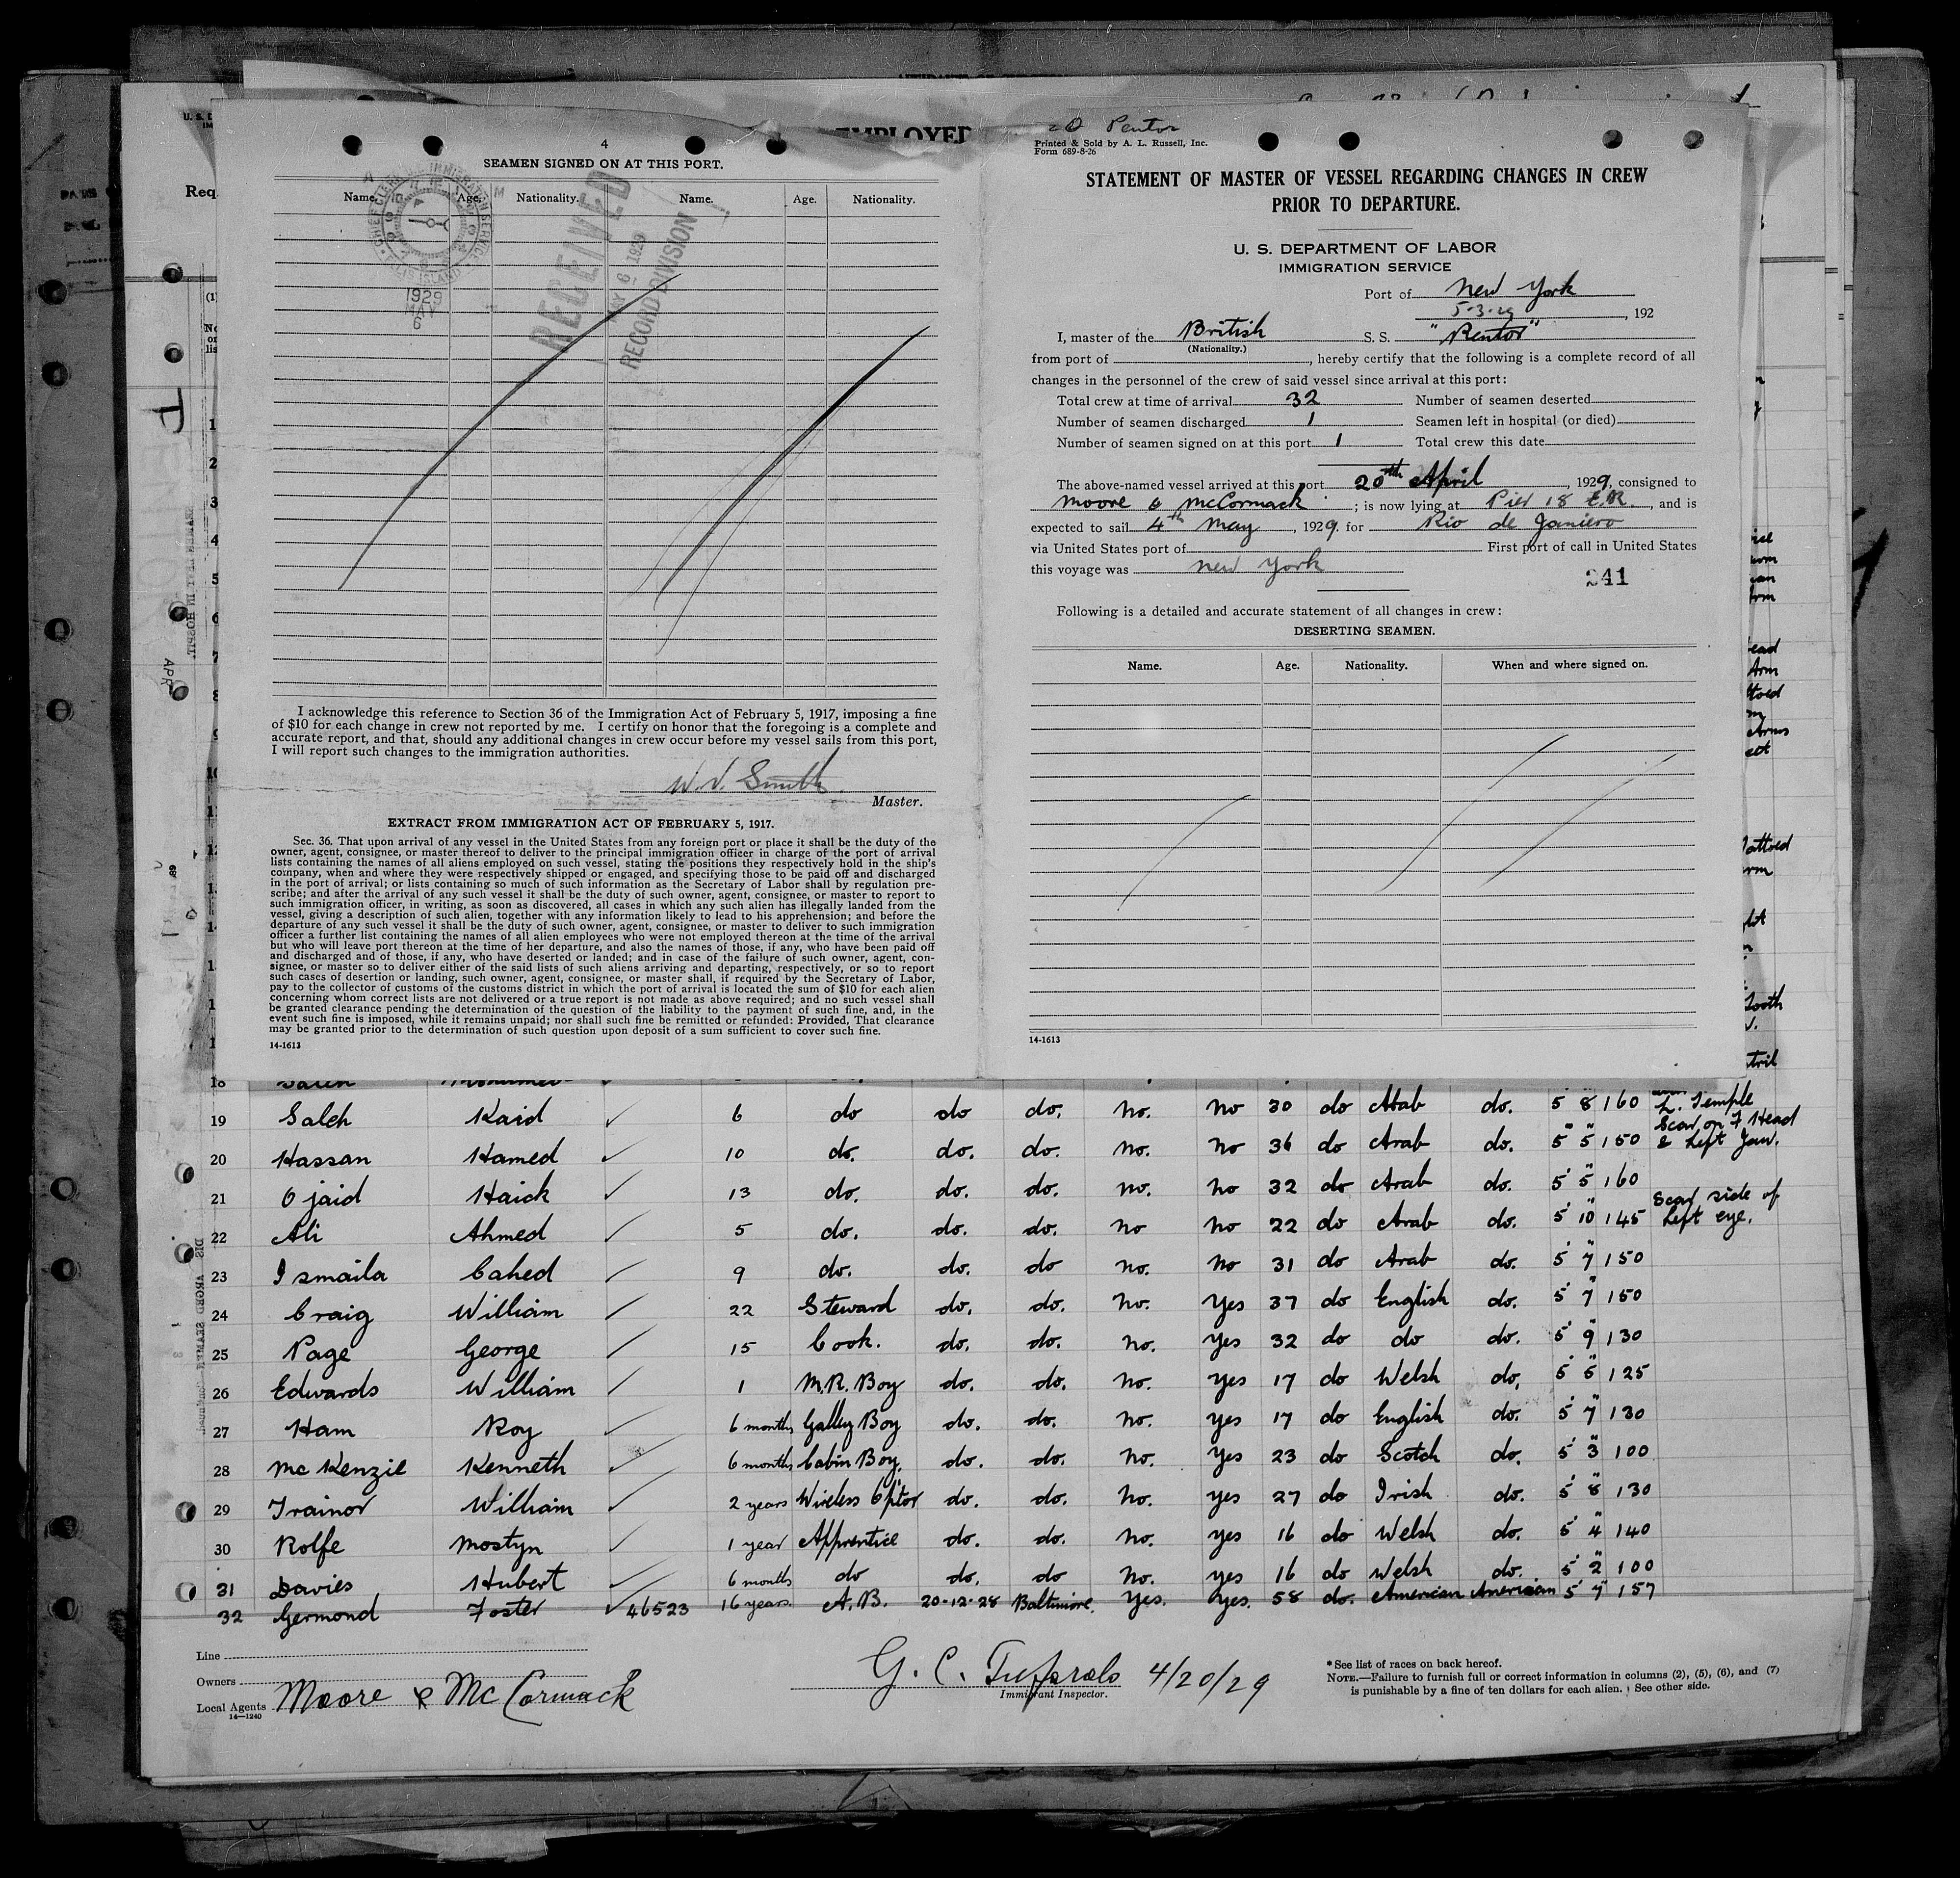 EMPLOYED
U. S. D
IM
Req
4
SEAMEN SIGNED ON AT THIS PORT.
Name. Age. Nationality. Name. Age. Nationality.
CHIEF CLERK U.S. IMMIGRATION SERVICE
ELLIS ISLAND
1929
MAY
6
RECEIVED
MAY 6 1929
RECORD DIVISION
I acknowledge this reference to Section 36 of the Immigration Act of February 5, 1917, imposing a fine
of $10 for each change in crew not reported by me. I certify on honor that the foregoing is a complete and
accurate report, and that, should any additional changes in crew occur before my vessel sails from this port,
I will report such changes to the immigration authorities.
W. V. Smith
Master.
EXTRACT FROM IMMIGRATION ACT OF FEBRUARY 5, 1917.
Sec. 36. That upon arrival of any vessel in the United States from any foreign port or place it shall be the duty of the
owner, agent, consignee, or master thereof to deliver to the principal immigration officer in charge of the port of arrival
lists containing the names of all aliens employed on such vessel, stating the positions they respectively hold in the ship's
company, when and where they were respectively shipped or engaged, and specifying those to be paid off and discharged
in the port of arrival; or lists containing so much of such information as the Secretary of Labor shall by regulation pre-
scribe; and after the arrival of any such vessel it shall be the duty of such owner, agent, consignee, or master to report to
such immigration officer, in writing, as soon as discovered, all cases in which any such alien has illegally landed from the
vessel, giving a description of such alien, together with any information likely to lead to his apprehension; and before the
departure of any such vessel it shall be the duty of such owner, agent, consignee, or master to deliver to such immigration
officer a further list containing the names of all alien employees who were not employed thereon at the time of the arrival
but who will leave port thereon at the time of her departure, and also the names of those, if any, who have been paid off
and discharged and of those, if any, who have deserted or landed; and in case of the failure of such owner, agent, con-
signee, or master so to deliver either of the said lists of such aliens arriving and departing, respectively, or so to report
such cases of desertion or landing, such owner, agent, consignee, or master shall, if required by the Secretary of Labor,
pay to the collector of customs of the customs district in which the port of arrival is located the sum of $10 for each alien
concerning whom correct lists are not delivered or a true report is not made as above required; and no such vessel shall
be granted clearance pending the determination of the question of the liability to the payment of such fine, and, in the
event such fine is imposed, while it remains unpaid; nor shall such fine be remitted or refunded: Provided, That clearance
may be granted prior to the determination of such question upon deposit of a sum sufficient to cover such fine.
14-1613
Pentor
Printed & Sold by A. L. Russell, Inc.
Form 689-8-26
STATEMENT OF MASTER OF VESSEL REGARDING CHANGES IN CREW
PRIOR TO DEPARTURE.
U. S. DEPARTMENT OF LABOR
IMMIGRATION SERVICE
Port of New York
5-3-29, 192
I, master of the British S. S. "Rentor"
(Nationality.)
from port of , hereby certify that the following is a complete record of all
changes in the personnel of the crew of said vessel since arrival at this port:
Total crew at time of arrival 32 Number of seamen deserted
Number of seamen discharged 1 Seamen left in hospital (or died)
Number of seamen signed on at this port 1 Total crew this date
The above-named vessel arrived at this port 20th April, 1929, consigned to
Moore & McCormack ; is now lying at Pier 18 E.R., and is
expected to sail 4th May, 1929. for Rio de Janiero
via United States port of First port of call in United States
this voyage was New York
241
Following is a detailed and accurate statement of all changes in crew:
DESERTING SEAMEN.
Name. Age. Nationality. When and where signed on.
14-1613
18 Saleh Mohamed
19 Saleh Kaid ✓ 6 do do do. No. No 30 do Arab do. 5' 8" 160 L. Temple
20 Hassan Hamed ✓ 10 do. do. do. No. No 36 do Arab do. 5' 5" 150 Scar on F. Head & Left Jaw.
21 Ojaid Haick ✓ 13 do. do. do. No. No 32 do Arab do. 5' 5" 160
22 Ali Ahmed ✓ 5 do. do. do. No No 22 do Arab do. 5' 10" 145 Scar side of Left eye.
23 Ismaila Cahed ✓ 9 do. do. do No. No 31 do Arab do. 5' 7" 150
24 Craig William ✓ 22 Steward do. do. No. Yes 37 do English do. 5' 7" 150
25 Page George ✓ 15 Cook. do. do. No. Yes 32 do do do. 5' 9" 130
26 Edwards William ✓ 1 M.R. Boy do. do. No. Yes 17 do Welsh do. 5' 5" 125
27 Ham Roy ✓ 6 months Galley Boy do. do. No. Yes 17 do English do. 5' 7" 130
28 Mc Kenzie Kenneth ✓ 6 months Cabin Boy. do. do. No. Yes 23 do Scotch do. 5' 3" 100
29 Trainor William ✓ 2 years Wireless Optor do. do. No. Yes 27 do Irish do. 5' 8" 130
30 Rolfe Mostyn ✓ 1 year Apprentice do. do. No. Yes 16 do Welsh do. 5' 4" 140
31 Davies Hubert ✓ 6 months do do. do No. Yes 16 do Welsh do. 5' 2" 100
32 Germond Foster ✓ 46523 16 years. A.B. 20-12-28 Baltimore. Yes. Yes. 58 do. American American 5' 7" 157
Line
Owners
Local Agents Moore & McCormack
14—1240
4/20/29
Immigrant Inspector.
*See list of races on back hereof.
NOTE.—Failure to furnish full or correct information in columns (2), (5), (6), and (7)
is punishable by a fine of ten dollars for each alien. See other side.